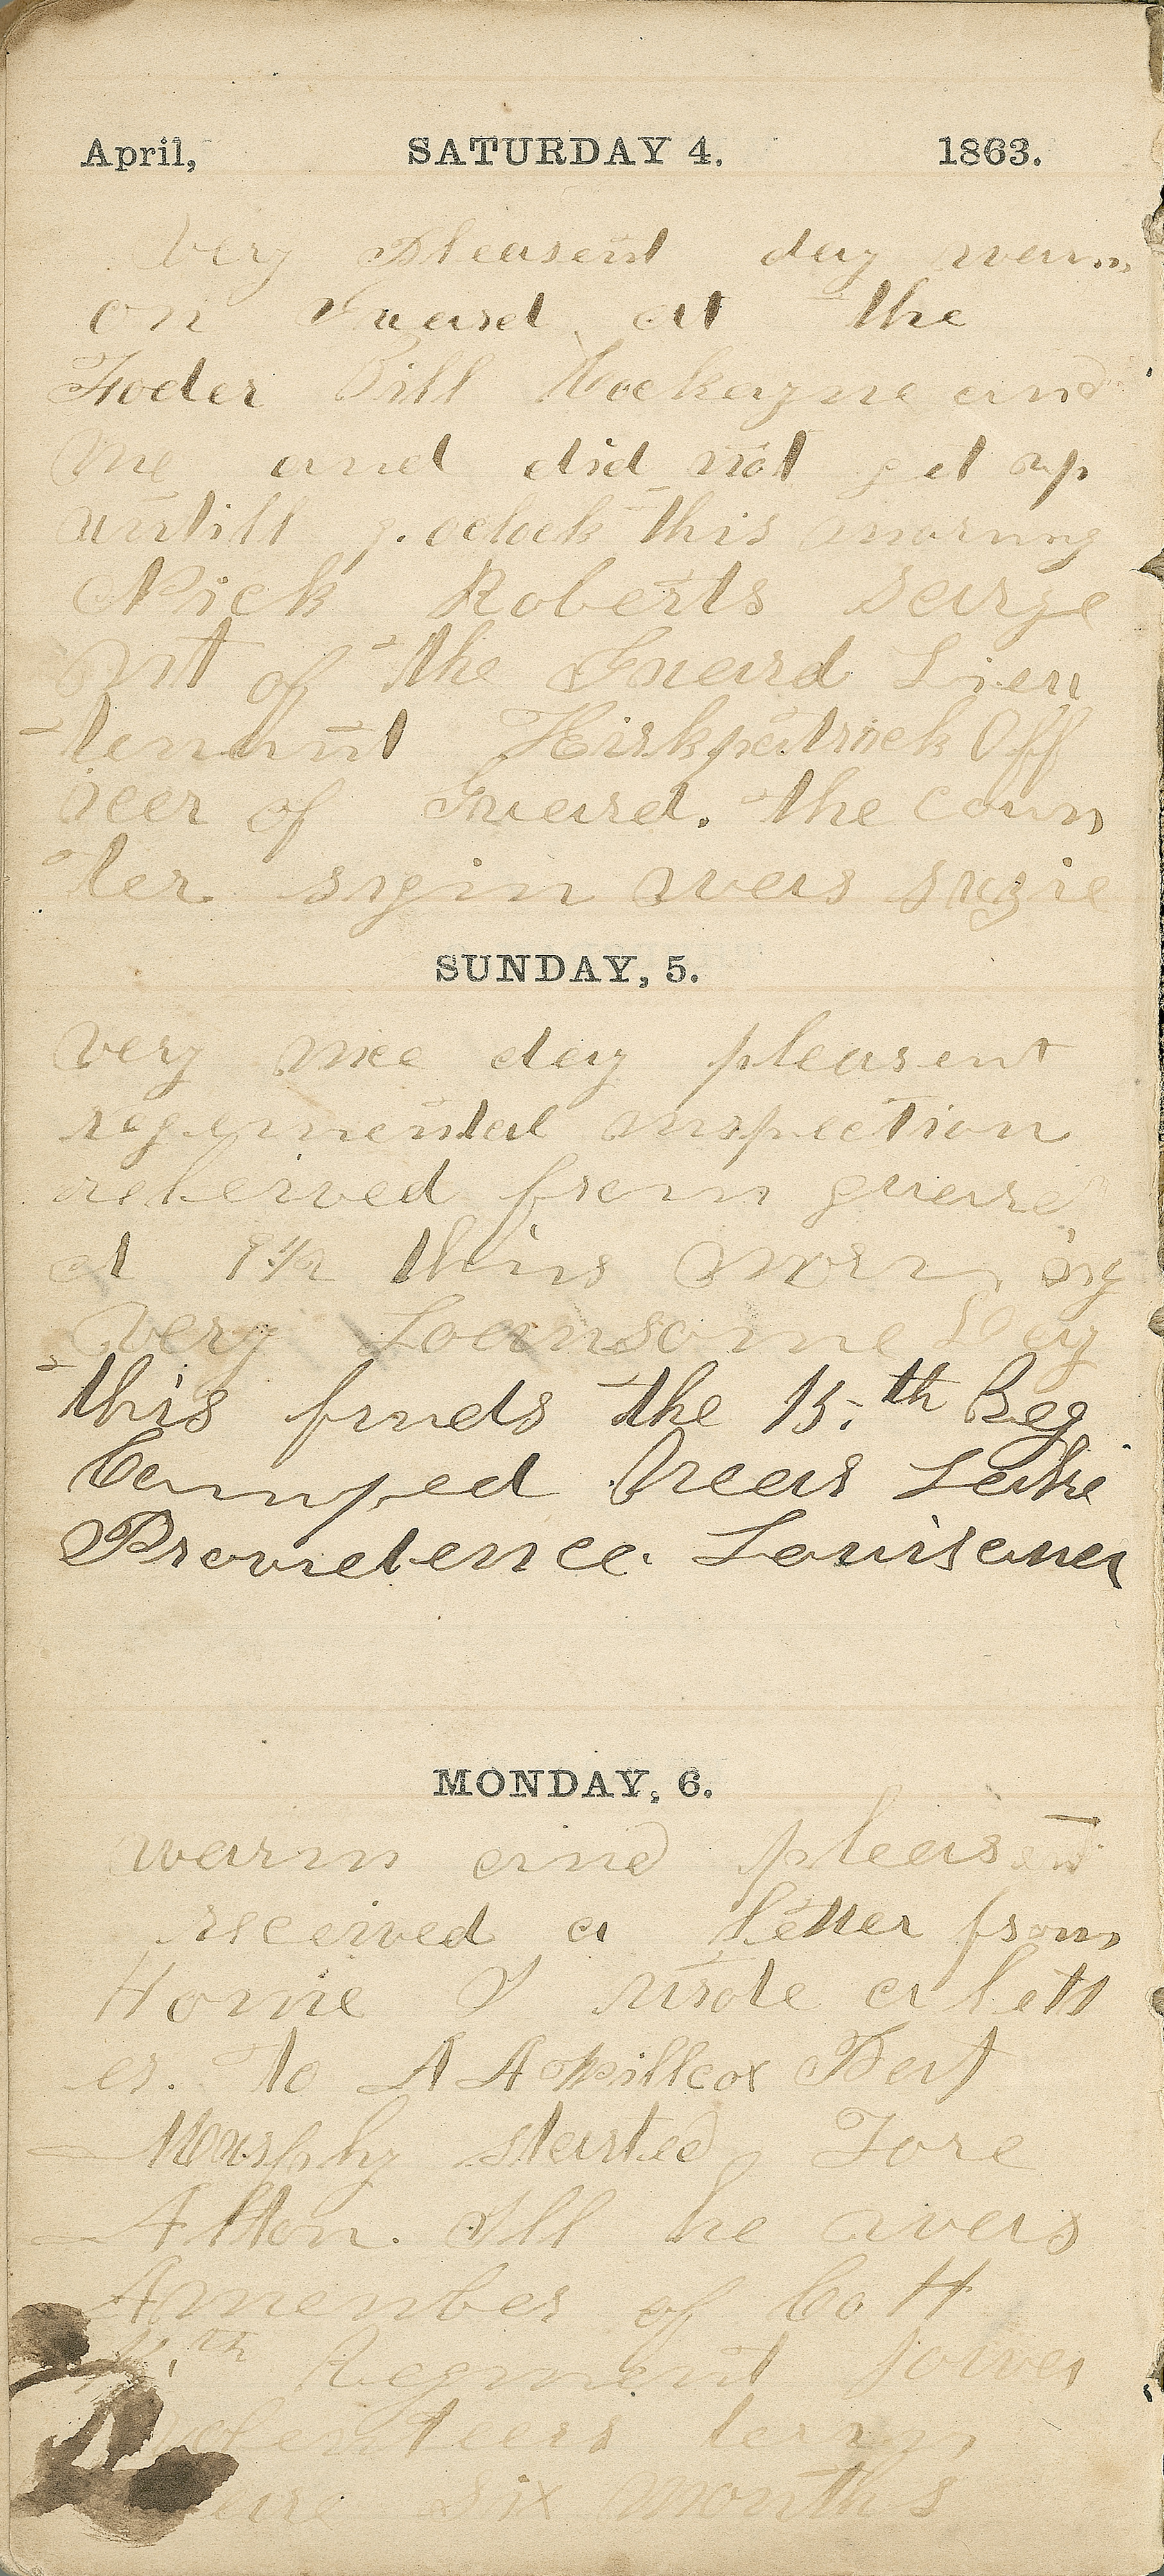 April, SATURDAY 4. 1863.
Very Pleasent day warm
on Guard at the
Foder Bill Cockayne and
me and did not get up
untill 7. oclock this morning
Nick Roberts Sarge
ant of the Guard Lieu
tenant Kirkpatrick Off
icer of Guard. the coun
ter sigin was suzie
SUNDAY, 5.
very nice day pleasent
regemental inspection
releived from guard
at 9 1/2 this morning
very Loansome Day
this finds the 15.th Reg
Camped Near Lake
Providence. Louisana
MONDAY, 6.
warm and pleasent
received a letter from
Home I wrote a lett
er. to A A Willcox Bart
Murphy started Fore
Alton. Ill he was
Amember of Co H
th Regment Iowa
Volenteers term
six months